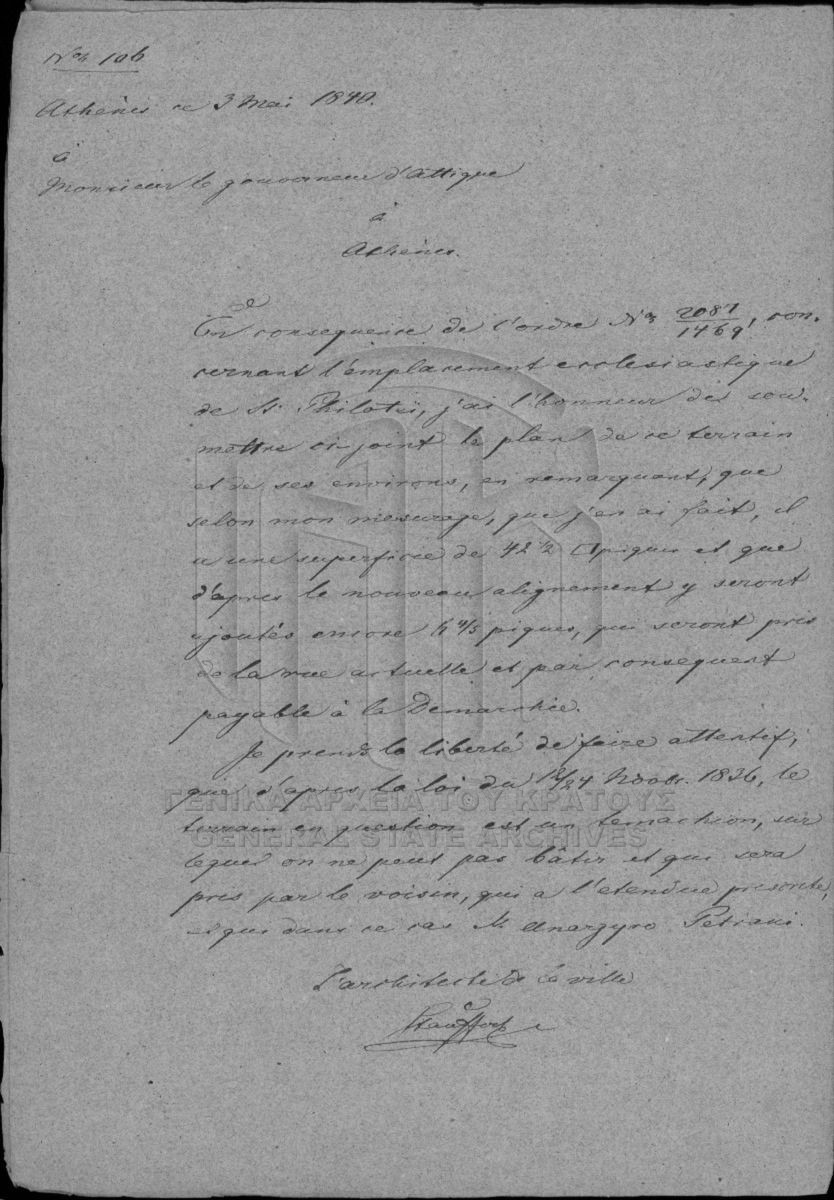 Nos 106
Athènes ce 3 Mai 1840.
à
Monsieur le gouverneur d'Attique
à
Athènes.
En consequence de l'ordre Nos 2087/1469, con-
cernant l'emplacement ecclesiastique
de St. Philoteï, j'ai l'honneur de sou-
mettre ci-joint le plan de ce terrain
et de ses environs, en remarquant, que
selon mon mesurage, que j'en ai fait, il
a une superficie de 42 2 piques et que
d'apres le nouveau alignement y seront
ajoutés encore piques, qui seront pris
de la rue actuelle et par consequent
payable à la Demarchie.
Je prends la liberté de faire attentif,
que d'apres la loi du 12/24 Novbr. 1836, le
terrain en question est un temachion, sur
lequel on ne peut pas bâtir et qui sera
pris par le voisin, qui a l'etendue presente,
et qui dans ce cas Mr Anargyro Petraki.
L'architecte de la ville
ΓΕΝΙΚΑ ΑΡΧΕΙΑ ΤΟΥ ΚΡΑΤΟΥΣ
GENERAL STATE ARCHIVES